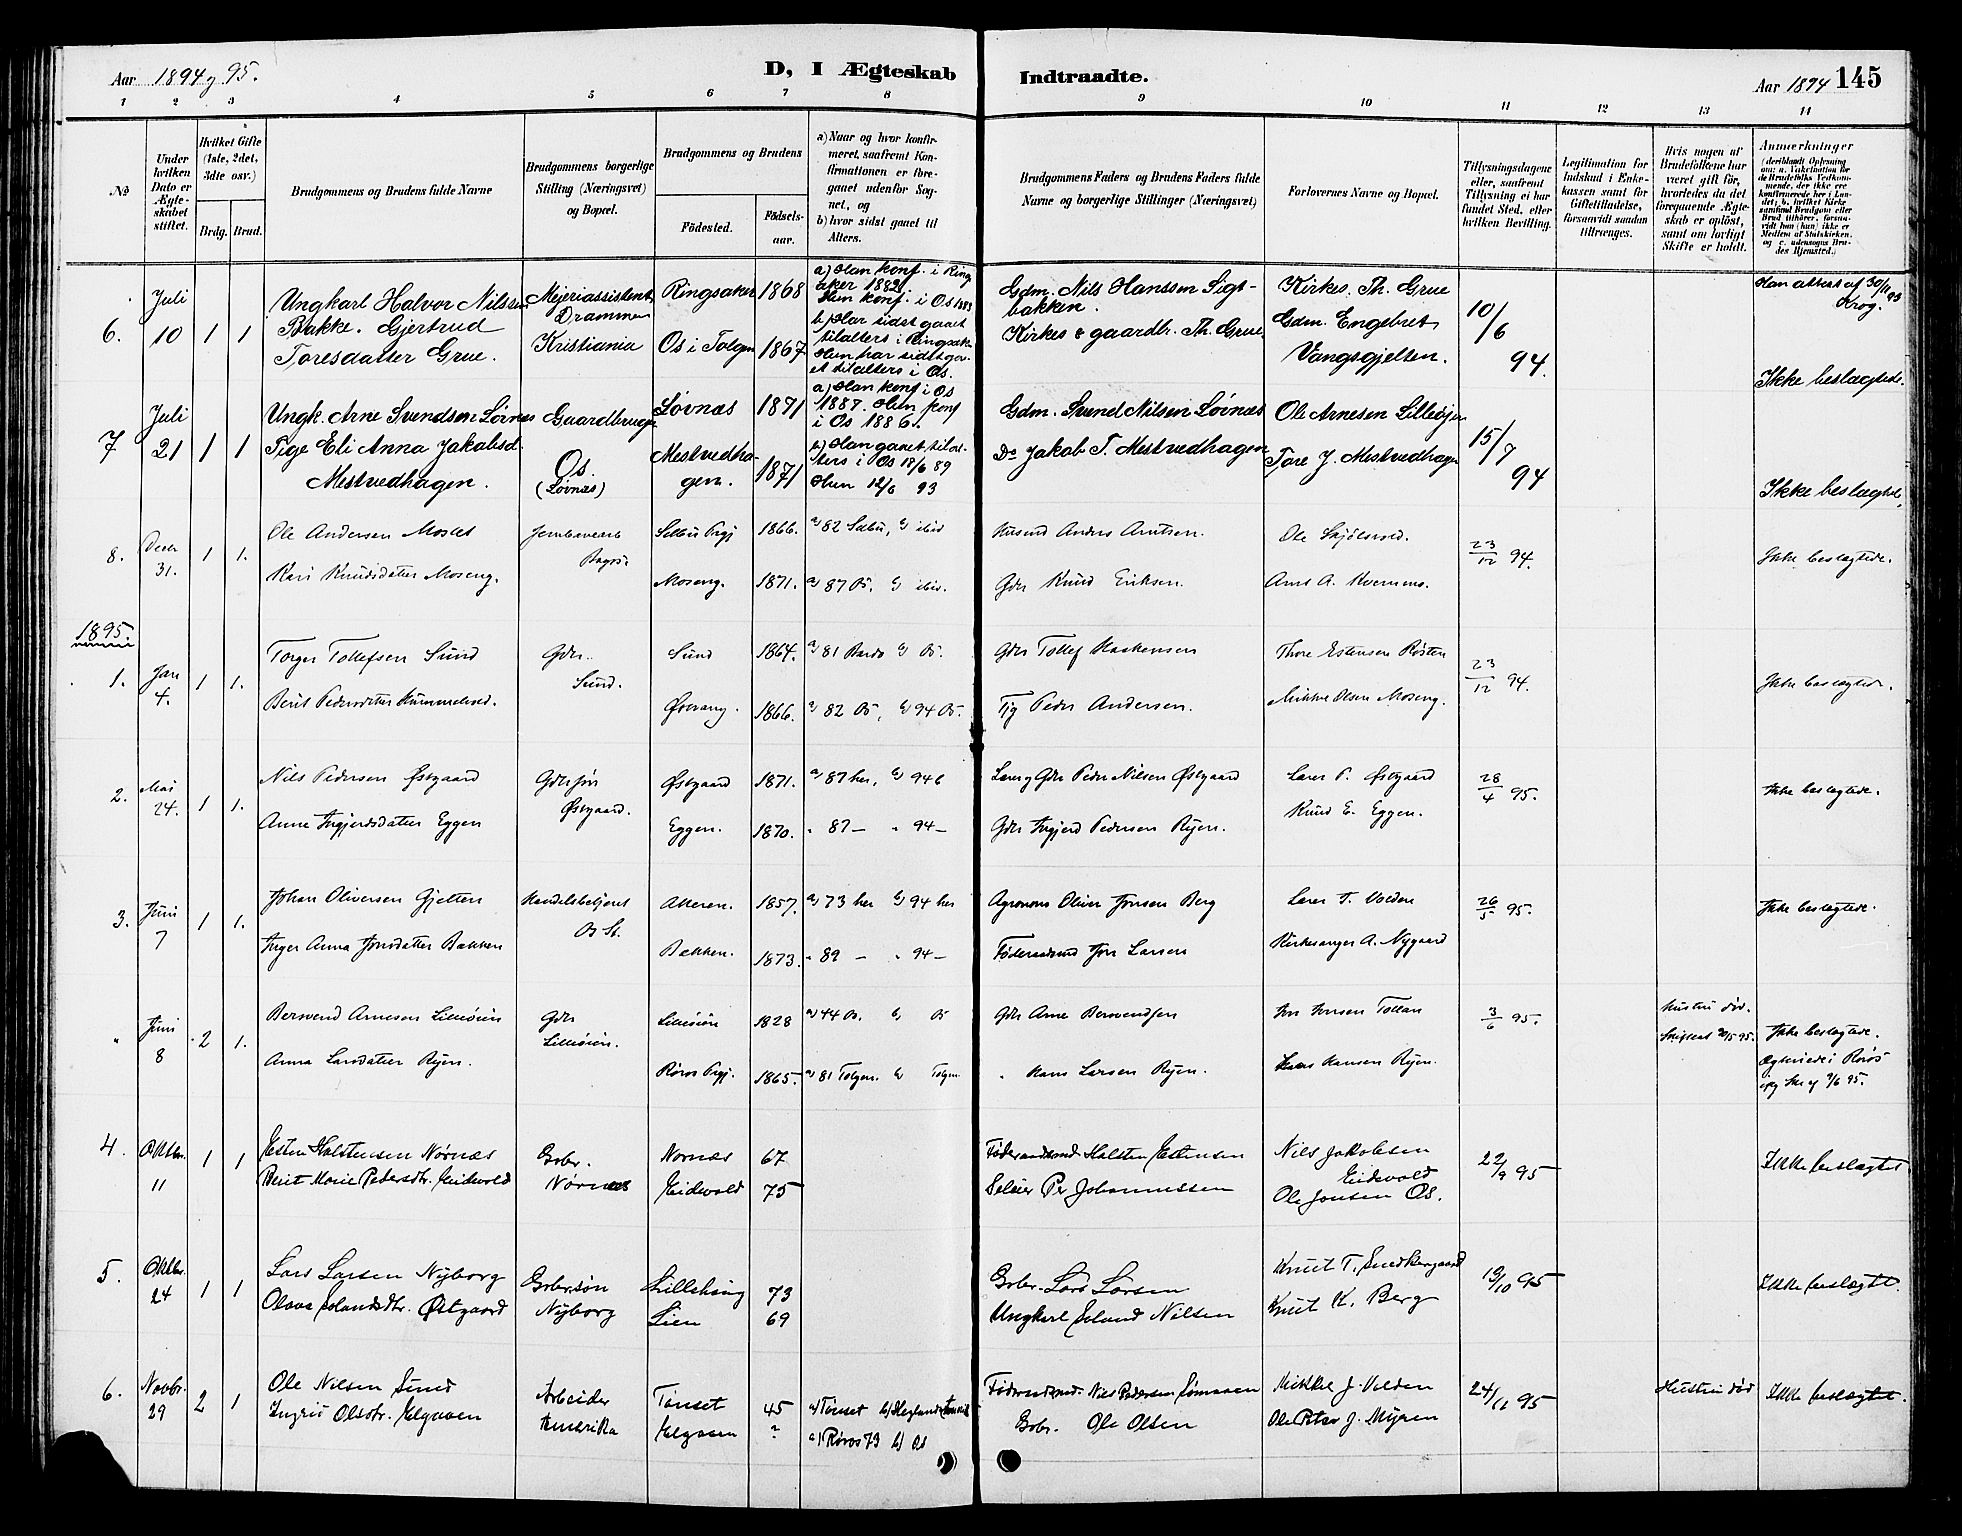 Aar 1894 g 95.
D, I Ægteskab
Indtraadte.
Aar 1894
145
1 2 3 4 5 6 7 8 9 10 11 12 13 14
No
Under hvilken Dato er Ægteskabet stiftet.
Hvilket Gifte (1ste, 2det, 3dte osv.)
Brdg. Brud.
Brudgommens og Brudens fulde Navne
Brudgommens borgerlige Stilling (Næringsvei) og Bopæl.
Brudgommens og Brudens
Födested.
Födselsaar.
a) Naar og hvor konfirmeret, saafremt Konfirmationen er foregaaet udenfor Sognet, og
b) hvor sidst gaaet til Alters.
Brudgommens Faders og Brudens Faders fulde Navne og borgerlige Stillinger (Næringsvei)
Forlovernes Navne og Bopæl.
Tillysningsdagene eller, saafremt Tillysning ei har fundet Sted, efter hvilken Bevilling.
Legitimation for Indskud i Enkekassen samt for Giftetilladelse, forsaavidt saadan tiltrænges.
Hvis nogen af Brudefolkene har været gift før, hvorledes da det foregaaende Ægteskab er oplöst, samt om lovligt Skifte er holdt.
Anmærkninger
6. Juli 10 1 1
Ungkarl Halvor Nilssen Bakke. Gjertrud Toresdatter Grue.
Mejeriassistent Drammen
Kristiania
Ringsaker 1868
Os i Tolgen 1867
a) Han konf. i Ringsaker 1882
Hun konf. i Os 1883
b) Har sidst gaaet tilalters i Ringsak.
Hun har sidst gaaet tilalters i Os.
Gdm. Nils Hanssen Sigtbakken.
Kirkes. & gaardbr. Th. Grue
Kirkes. Th. Grue
Gdm. Engebret Vangsgjelten.
10/6 94.
Han attest af 30/11 93 Krog.
Ikke beslægtede.
7 Juli 21 1 1
Ungk. Arne Svendsen Løvnæs
Pige Eli Anna Jakobsd. Mestvedhagen.
Gaardbruger
Os. (Løvnæs)
Løvnæs 1871
Mestvedhagen. 1871
a) Han konf i Os 1887. Hun konf i Os 1886.
b) Han gaaet tilalters i Os 18/6 89
Hun 12/6 93
Gdm. Svend Nilsen Løvnæs
Do Jakob T. Mestvedhagen
Ole Arnesen Lilleöjen
Tore J. Mestvedhagen
15/7 94
Ikke beslægtede.
8. Decr 31. 1 1.
Ole Andersen Moslet
Kari Knudsdatter Moseng.
Selbu Prgj 1866.
Moseng. 1871.
a) 82 Selbu, b) ibid
a) 87 Os. b) ibid.
Husmd Anders Arntsen.
Gdr Knud Eriksen.
Ole Skjölsvold.
Arnt A. Kvernmo.
23/12 94.
Ikke beslægtede.
1895.
1. Jan 4. 1 1.
Torger Tollefsen Sund
Berit Pedersdatter Hummelvol.
Gdr. Sund.
Sund 1864.
Østvang. 1866.
a) 81 Bardo b) Os.
a) 82 Os, b) 94 Os.
Gdr Tollef Haakensen
Tig Peder Andersen.
Thore Estensen Røsten
Mikkel Olsen Moseng.
23/12 94.
Ikke beslægtede.
2. Mai 24. 1 1.
Nils Pedersen Østgaard
Anne Ingjerdsdatter Eggen
Gdrsøn Østgaard.
Østgaard 1871.
Eggen. 1870.
a) 87 her, b) 94 b
" 87 — " 94 —
Lærer g Gdr Peder Nilsen Østgaard
Gdr Ingjerd Pedersen Ryen.
Lærer P. Østgaard
Knud E. Eggen.
28/4 95.
Ikke beslægtede.
3. Juni 7 1 1.
Johan Oliversen Gjelten
Inger Anna Jonsdatter Bakken
Handelsbetjent Os St.
1857.
Bakken. 1873.
a) 73 her b) 94 her
" 89 — " 94 —
Agronom Oliver Jonsen Berg
Føderaadsmd Jon Larsen
Lærer T. Volden
Kirkesanger A. Nygaard
26/5 95.
Ikke beslægtede.
" Juni 8 2 1.
Bersvend Arnesen Lilleöien
Anna Larsdatter Ryen.
Gdr Lilleöien.
Lilleöien 1828
Røros Prgj. 1865.
a) 44 Os. b) Os
a) 81 Tolgen. b) Tolgen
Gdr Arne Bersvendsen
" Hans Larsen Ryen.
Jon Jonsen Tollan
Hans Hansen Ryen.
3/6 95.
Hustru død.
Skifteat 30/5 95.
Ikke beslægtede.
Ægteviede i Røros
4. Oktbr. 11 1 1
Esten Halstensen Nørnæs
Berit Marie Pedersdtr. Eidsvold
Gbr. Nørnæs
Nørnæs 67
Eidsvold 75
Føderaadsmd. Halsten Estensen
Selveier Per Johannessen
Nils Jakobsen Eidsvold
Ole Jonsen Os.
22/9 95
Ikke beslægtet
5. Oktbr. 24 1 1
Lars Larsen Nyborg
Olava Erlandsdtr. Østgaard
Gbrsøn Nyborg
73
Lien 69
Gbr. Lars Larsen
Ungkarl Erland Nilsen
Knut T. Smedkergaard
Knut K. Berg
13/10 95
Ikke beslægtet.
6. Novbr. 29 2 1
Ole Nilsen Sund
Ingrid Olsdtr. Elgaaen
Arbeider Amerika
Tønset 45
Elgaaen ?
a) Tønset
a) Røros 79 b) Os
Føderaadsmd. Nils Pedersen Sømoen
Gbr. Ole Olsen
Mikkel J. Volden
Ole Peter J. Myren
24/11 95
Hustru död
Ikke beslægtet.